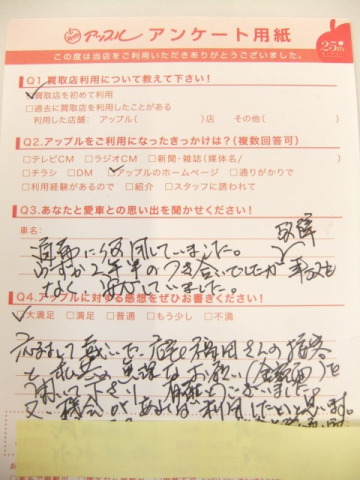 アップル アンケート用紙
25th
この度は当店をご利用いただきありがとうございました。
Q1.買取店利用について教えて下さい!
買取店を初めて利用
□過去に買取店を利用したことがある
利用した店舗：アップル( )店 その他( )
Q2.アップルをご利用になったきっかけは?(複数回答可)
□テレビCM □ラジオCM □新聞・雑誌(媒体名/ )
□チラシ □DM □アップルのホームページ □通りがかりで
□利用経験があるので □紹介 □スタッフに誘われて
Q3.あなたと愛車との思い出を聞かせください!
車名：
通勤に使用していました。
わずか2年半のつき合いでしたが 事故も 故障
なく 満足していました。
Q4.アップルに対する感想をぜひお書きください!
□大満足 □満足 □普通 □もう少し □不満
対応して戴いた、店長 さんの接客
と 私共の 無理なお願い(金額面)を
聞いて下さり 有難うございました。
又、機会があれば利用したいと思います。